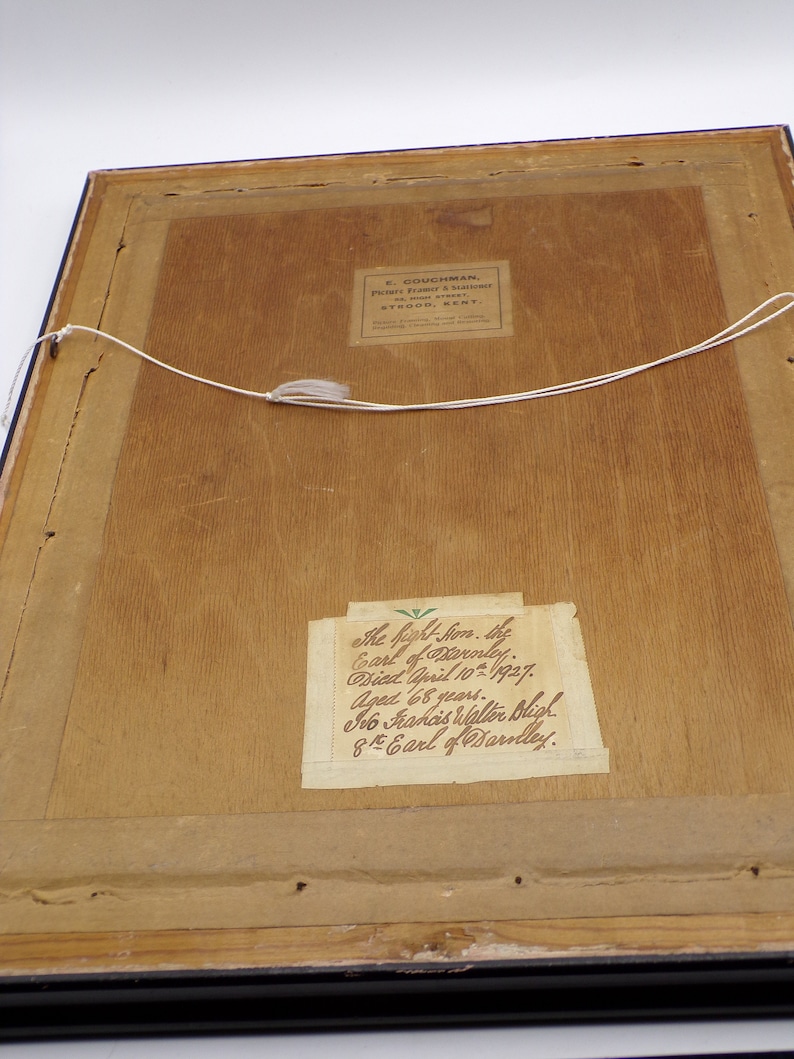 E. COUCHMAN,
Picture Framer & Stationer
HIGH STREET,
STROOD, KENT.
Picture Framing, Mount Cutting,
Regilding, Cleaning and Restoring
The Right Hon. the
Earl of Darnley.
Died April 10th 1927.
Aged 68 years.
Ivo Francis Walter Bligh
8th Earl of Darnley.